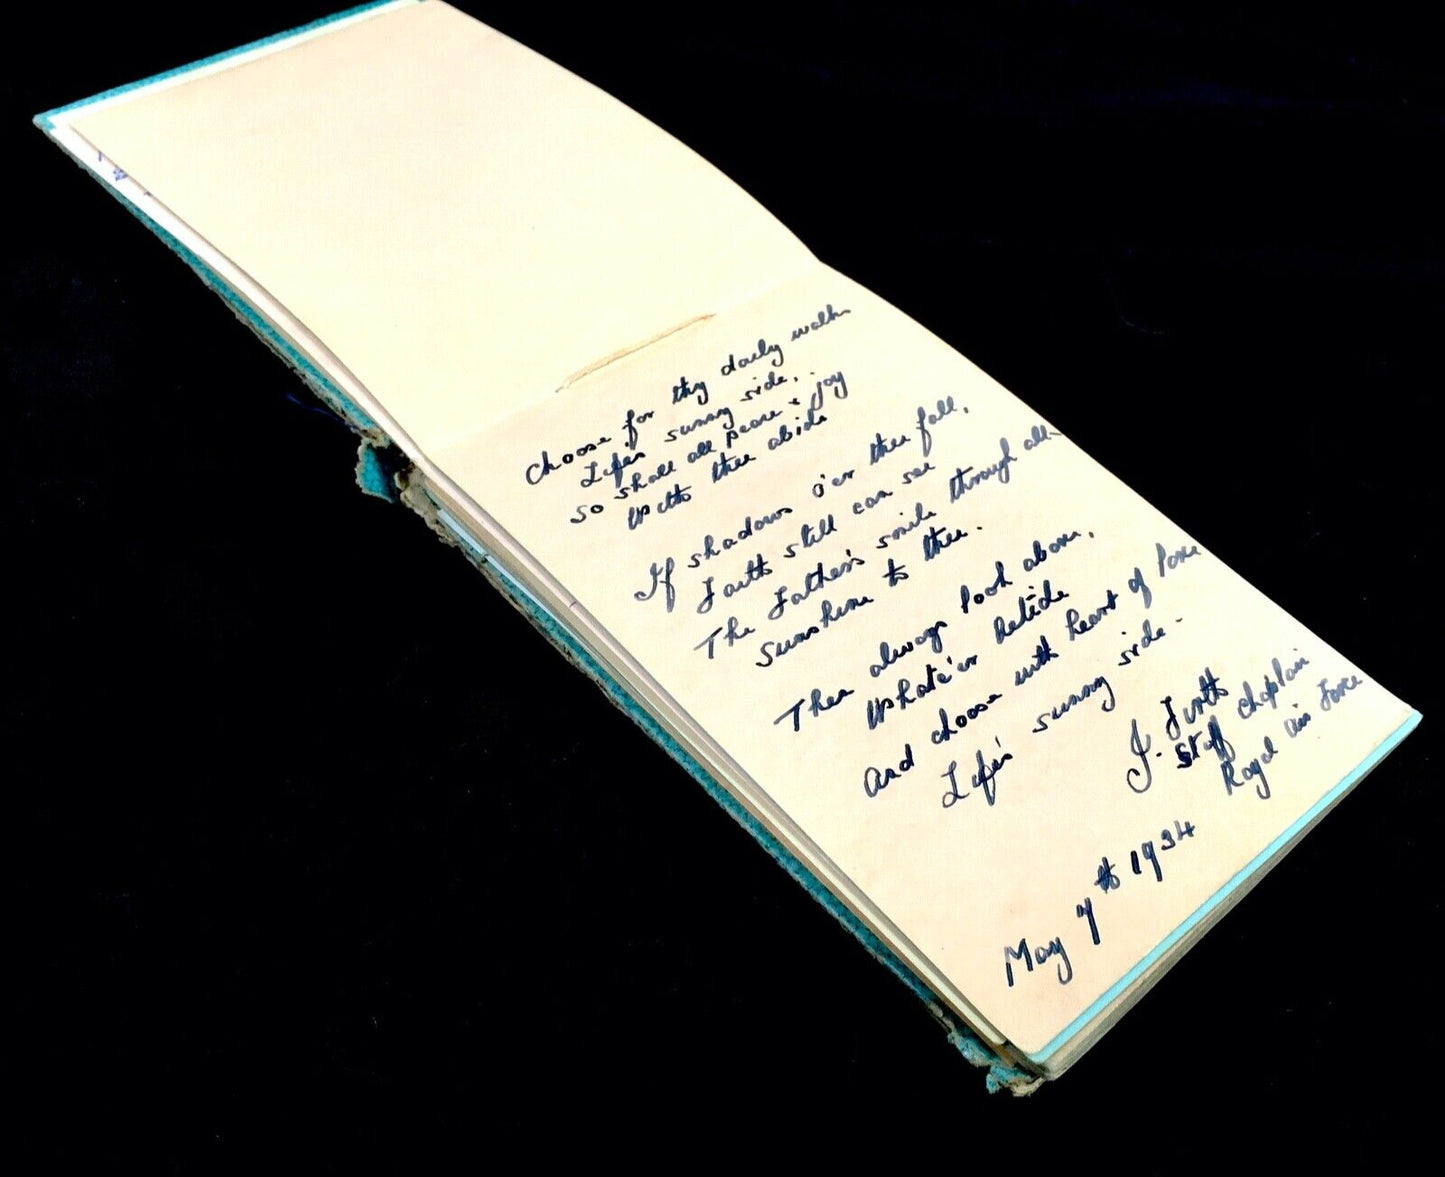 Choose for thy daily walk
Life's sunny side,
So shall all peace & joy
With thee abide
If shadows o'er thee fall,
Faith still can see
The Father's smile through all
Sunshine to thee.
Then always look above,
Whate'er betide
And choose with heart of love
Life's sunny side.
J. Firth
Staff Chaplain
Royal Air Force
May 7th 1934